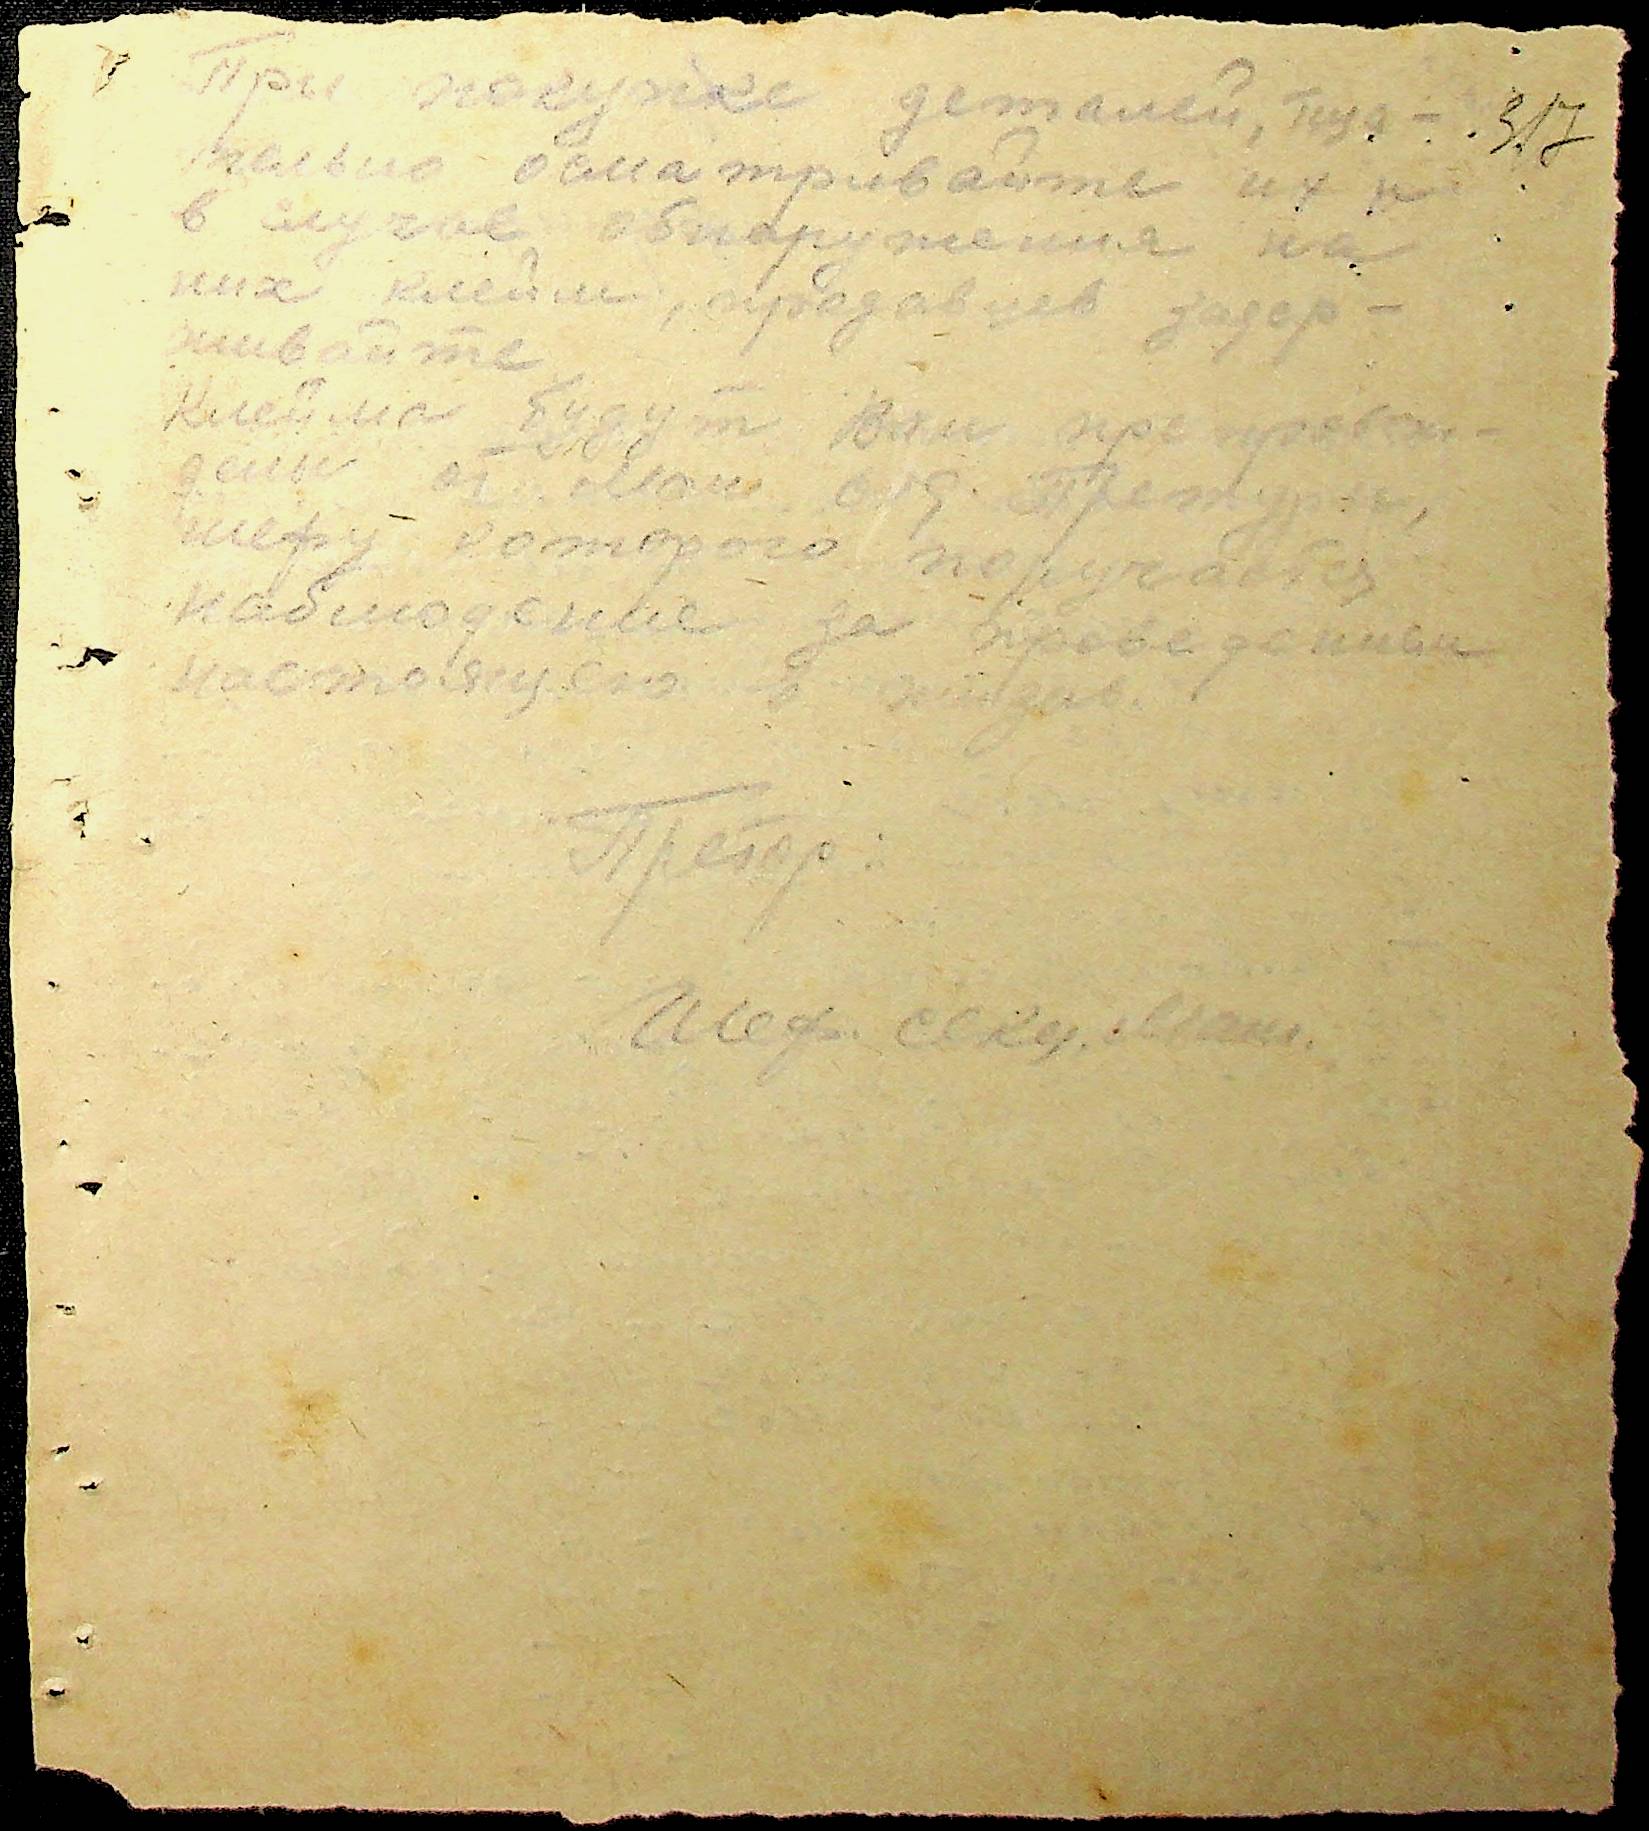 При покупке деталей, тща-
317
тельно осматривайте их и
в случае обнаружения на
них клейм, продавцев задер-
живайте
Клейма будут Вам препровож-
дены от Маш. отд. Претуры,
шефу которого поручается
наблюдение за проведением
настоящего в жизнь.
Претор:
Шеф. секц. Маш.